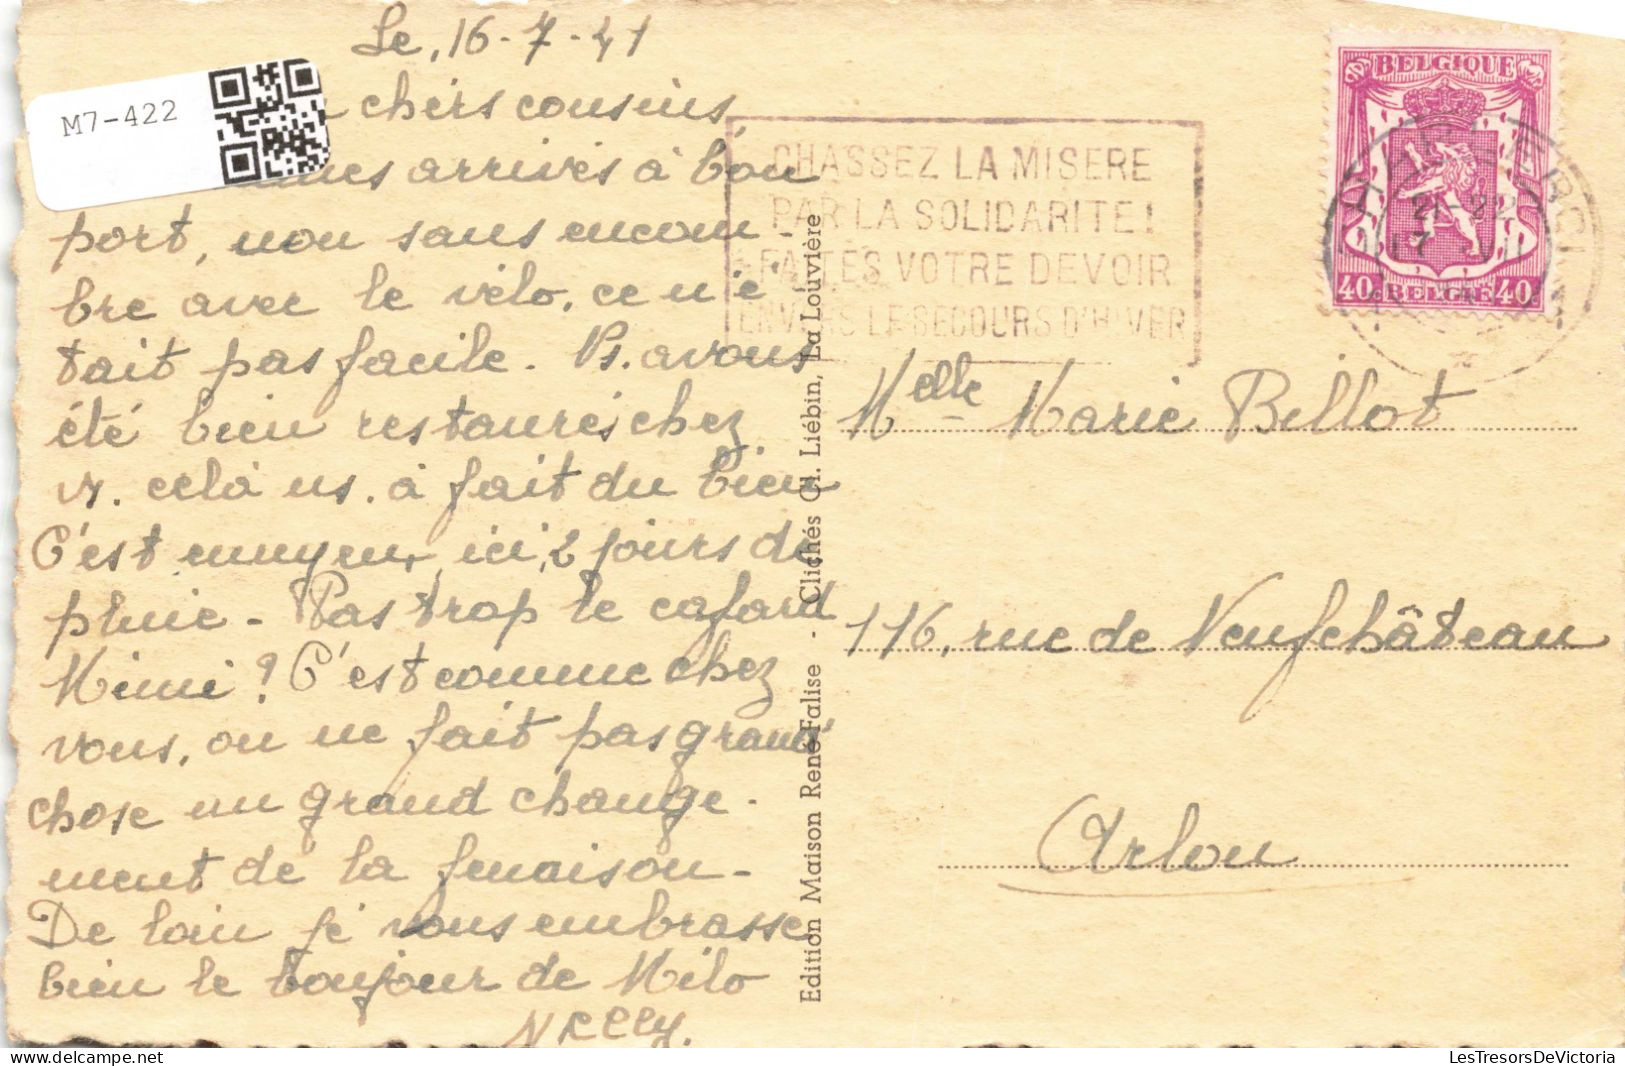 Le, 16-7-41
chers cousins,
arrivés à bon
port, non sans encom-
bre avec le vélo, ce n'é
tait pas facile. Ns. avons
été bien restaurés chez
v. celà ns. a fait du bien
C'est ennuyeux ici, 2 jours de
pluie - Pas trop le cafard
Mimi ? C'est comme chez
vous, on ne fait pas grand'
chose un grand change-
ment de la fenaison-
De loin je vous embrasse
bien le bonjour de Milo
Nelly.
M7-422
CHASSEZ LA MISERE
PAR LA SOLIDARITE!
FAITES VOTRE DEVOIR
ENVERS LE SECOURS D'HIVER
BELGIQUE
21-22
17
40 BELGIE 40
Edition Maison René Falise - Clichés Cl. Liébin, La Louvière
Melle Marie Billot
116, rue de Neufchâteau
Arlon
LesTresorsDeVictoria